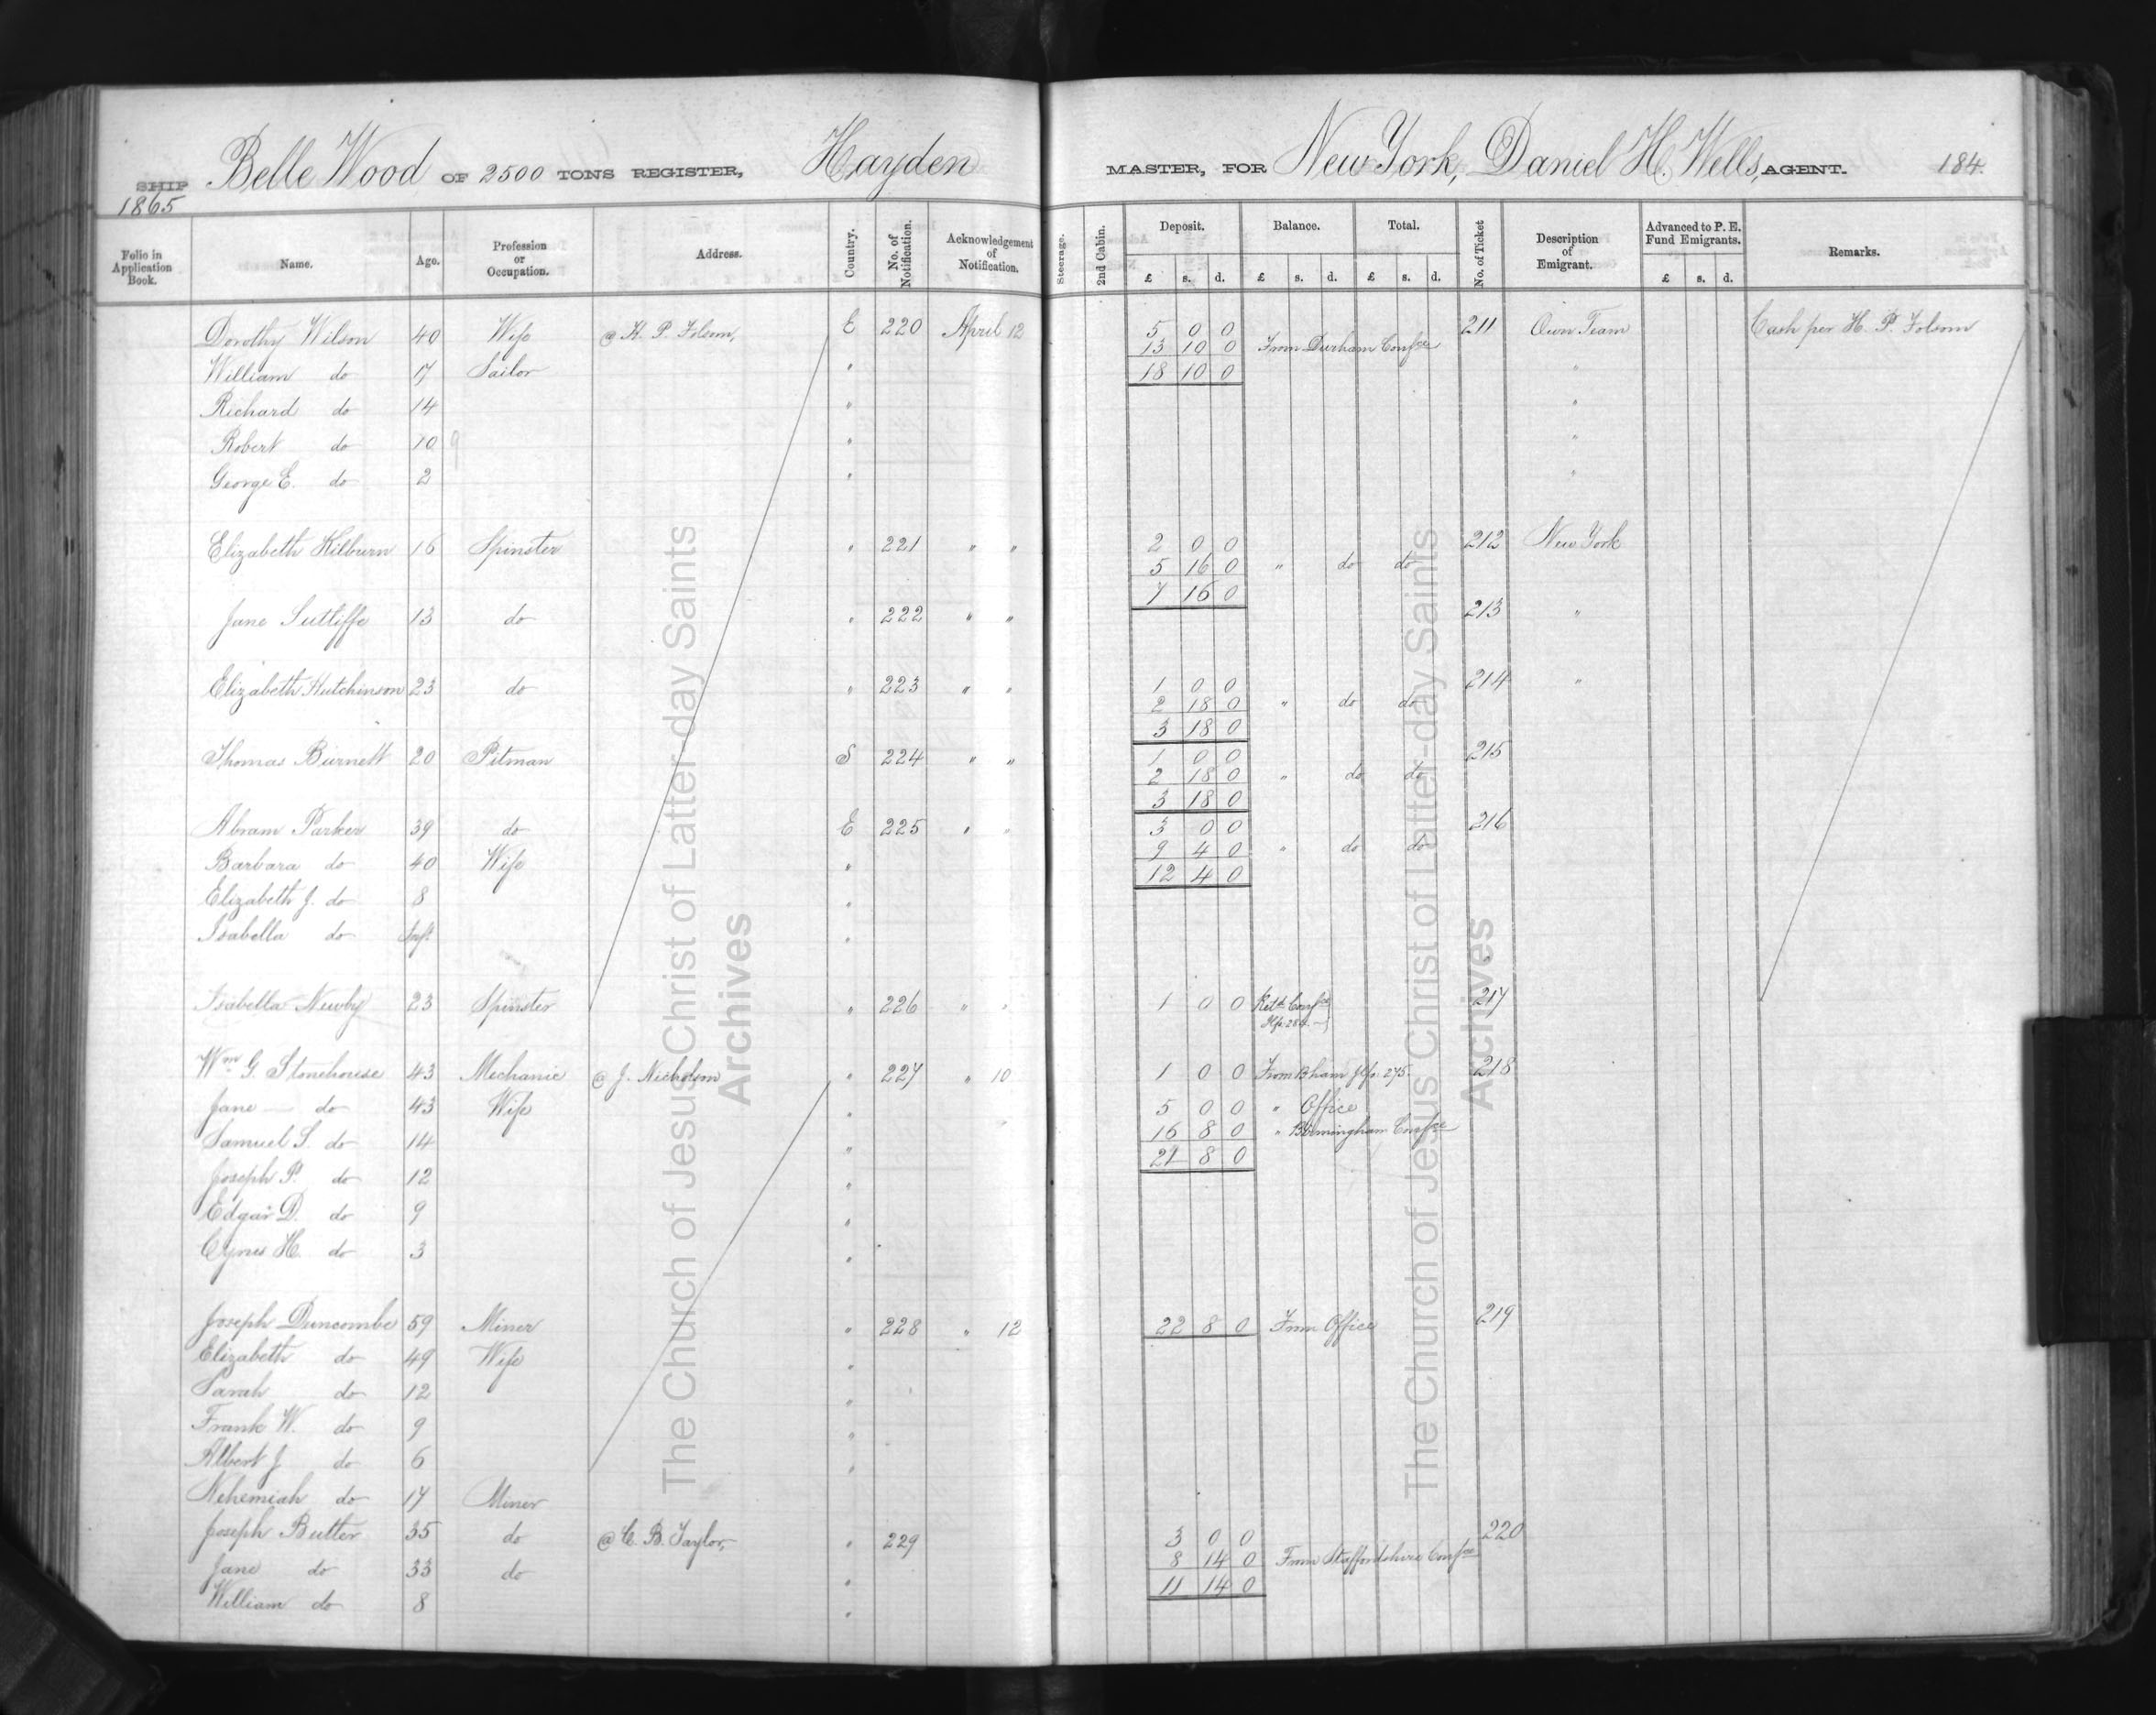 SHIP Belle Wood OF 2500 TONS REGISTER, Hayden MASTER, FOR New York, Daniel H. Wells, AGENT. 184.
1865
Folio in Application Book. Name. Age. Profession or Occupation. Address. Country. No. of Notification. Acknowledgement of Notification. Steerage. 2nd Cabin. Deposit. Balance. Total. No. of Ticket Description of Emigrant. Advanced to P. E. Fund Emigrants. Remarks.
£ s. d. £ s. d. £ s. d. £ s. d.
Dorothy Wilson 40 Wife @ H. P. Folsom, E 220 April 12 5 0 0 211 Own Team Cash per H. P. Folsom
13 10 0 From Durham Confce
William do 17 Sailor " 18 10 0 "
Richard do 14 " "
Robert do 10 9 " "
George E. do 2 " "
Elizabeth Kilburn 16 Spinster " 221 " " 2 0 0 212 New York
5 16 0 " do do
7 16 0
Jane Sutliffe 13 do " 222 " " 213 "
Elizabeth Hutchinson 23 do " 223 " " 1 0 0 214 "
2 18 0 " do do
3 18 0
Thomas Burnett 20 Pitman S 224 " " 1 0 0 215
2 18 0 " do do
3 18 0
Abram Parker 39 do E 225 " " 3 0 0 216
9 4 0 " do do
Barbara do 40 Wife " 12 4 0
Elizabeth J. do 8 "
Isabella do Inft "
Isabella Newby 23 Spinster " 226 " " 1 0 0 Confce 217
Wm G. Stonehouse 43 Mechanic @ J. Nicholson " 227 " 10 1 0 0 From Bham 275. 218
Jane do 43 Wife " 5 0 0 " Office
16 8 0 " Birmingham Confce
Samuel S. do 14 " 21 8 0
Joseph P. do 12 "
Edgar D. do 9 "
Cyrus H. do 3 "
Joseph Duncombe 59 Miner " 228 " 12 22 8 0 From Office 219
Elizabeth do 49 Wife "
Sarah do 12 "
Frank W. do 9 "
Albert J do 6 "
Nehemiah do 17 Miner
Joseph Butter 35 do @ C. B. Taylor, " 229 3 0 0 220
8 14 0 From Staffordshire Confce
Jane do 33 do " 11 14 0
William do 8 "
The Church of Jesus Christ of Latter-day Saints
Archives
The Church of Jesus Christ of Latter-day Saints
Archives